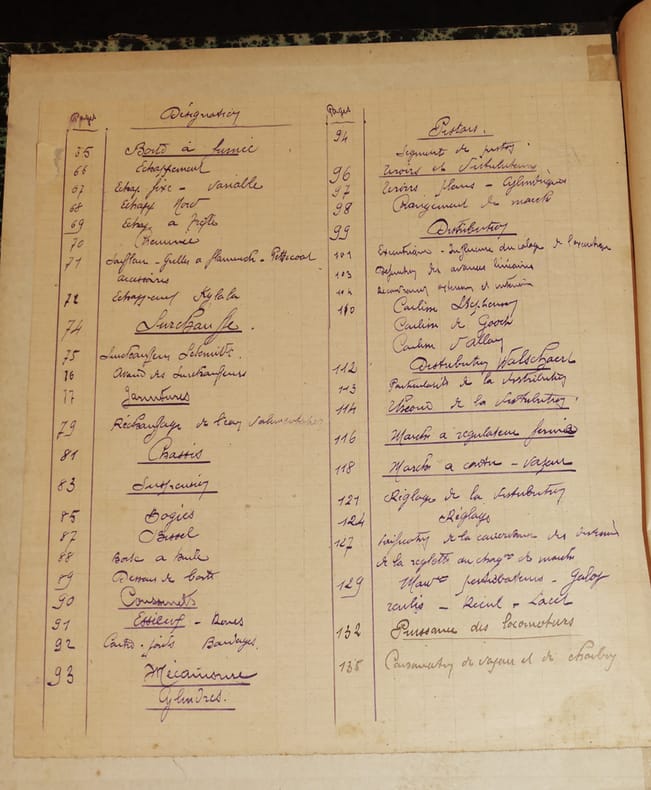 Pages Désignation
65 Boîte à fumée
66 Echappement
67 Echap fixe - variable
68 Echapp Nord
69 Echap a trèfle
70 Cheminée
71 Souffleur - Grilles a flammech - Petticoat
accessoires
72 Echappement Kylala
74 Surchauffe.
75 Surchauffeur Schmidt.
76 Avant. des Surchauffeurs
77 Garnitures
79 Réchauffage de l'eau d'alimentation
81 Chassis
83 Suspension
85 Bogies
87 Bissel
88 Boite a huile
89 Dessous de boite
90 Coussinets
91 Essieux - Roues
92 Contre-poids Bandages.
93 Mécanisme
Cylindres.
Pages
94 Pistons.
Segment de piston
96 Tiroirs et distributeurs
97 Tiroirs plans - Cylindriques
98 Changement de marche
99 Distribution
101 Excentrique - Influence du calage de l'excentrique
103 Définition des avances linéaires
104 Recouvrement extérieur et intérieur
110 Coulisse Stephenson
Coulisse de Gooch
Coulisse d'Allan
112 Distribution Walschaert
113 Particularité de la distribution
114 de la distribution.
116 Marche a régulateur fermé
118 Marche a contre-vapeur
121 Réglage de la distribution
124 Réglage
127 Vérification de la concordance des divisions
de la réglette du chagmt de marche
129 Mouvts perturbateurs - Galop
roulis - Recul - Lacet
132 Puissance des locomoteurs
135 Consommation de vapeur et de charbon